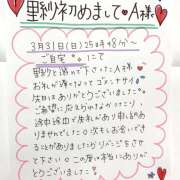 里紗初めまして♥A様♡
3月31日(日)25時48分〜
ご自宅🐾にて
里紗を選んで下さったA様
お礼が遅くなってゴメンナサイ
先日はありがとうございました♡
ご希望に応えられなかったり
途中
ありませんでした💧次もお会いできる
ことがありましたらリベンジをさせて
下さい。この度は本当にありが
とうございました!